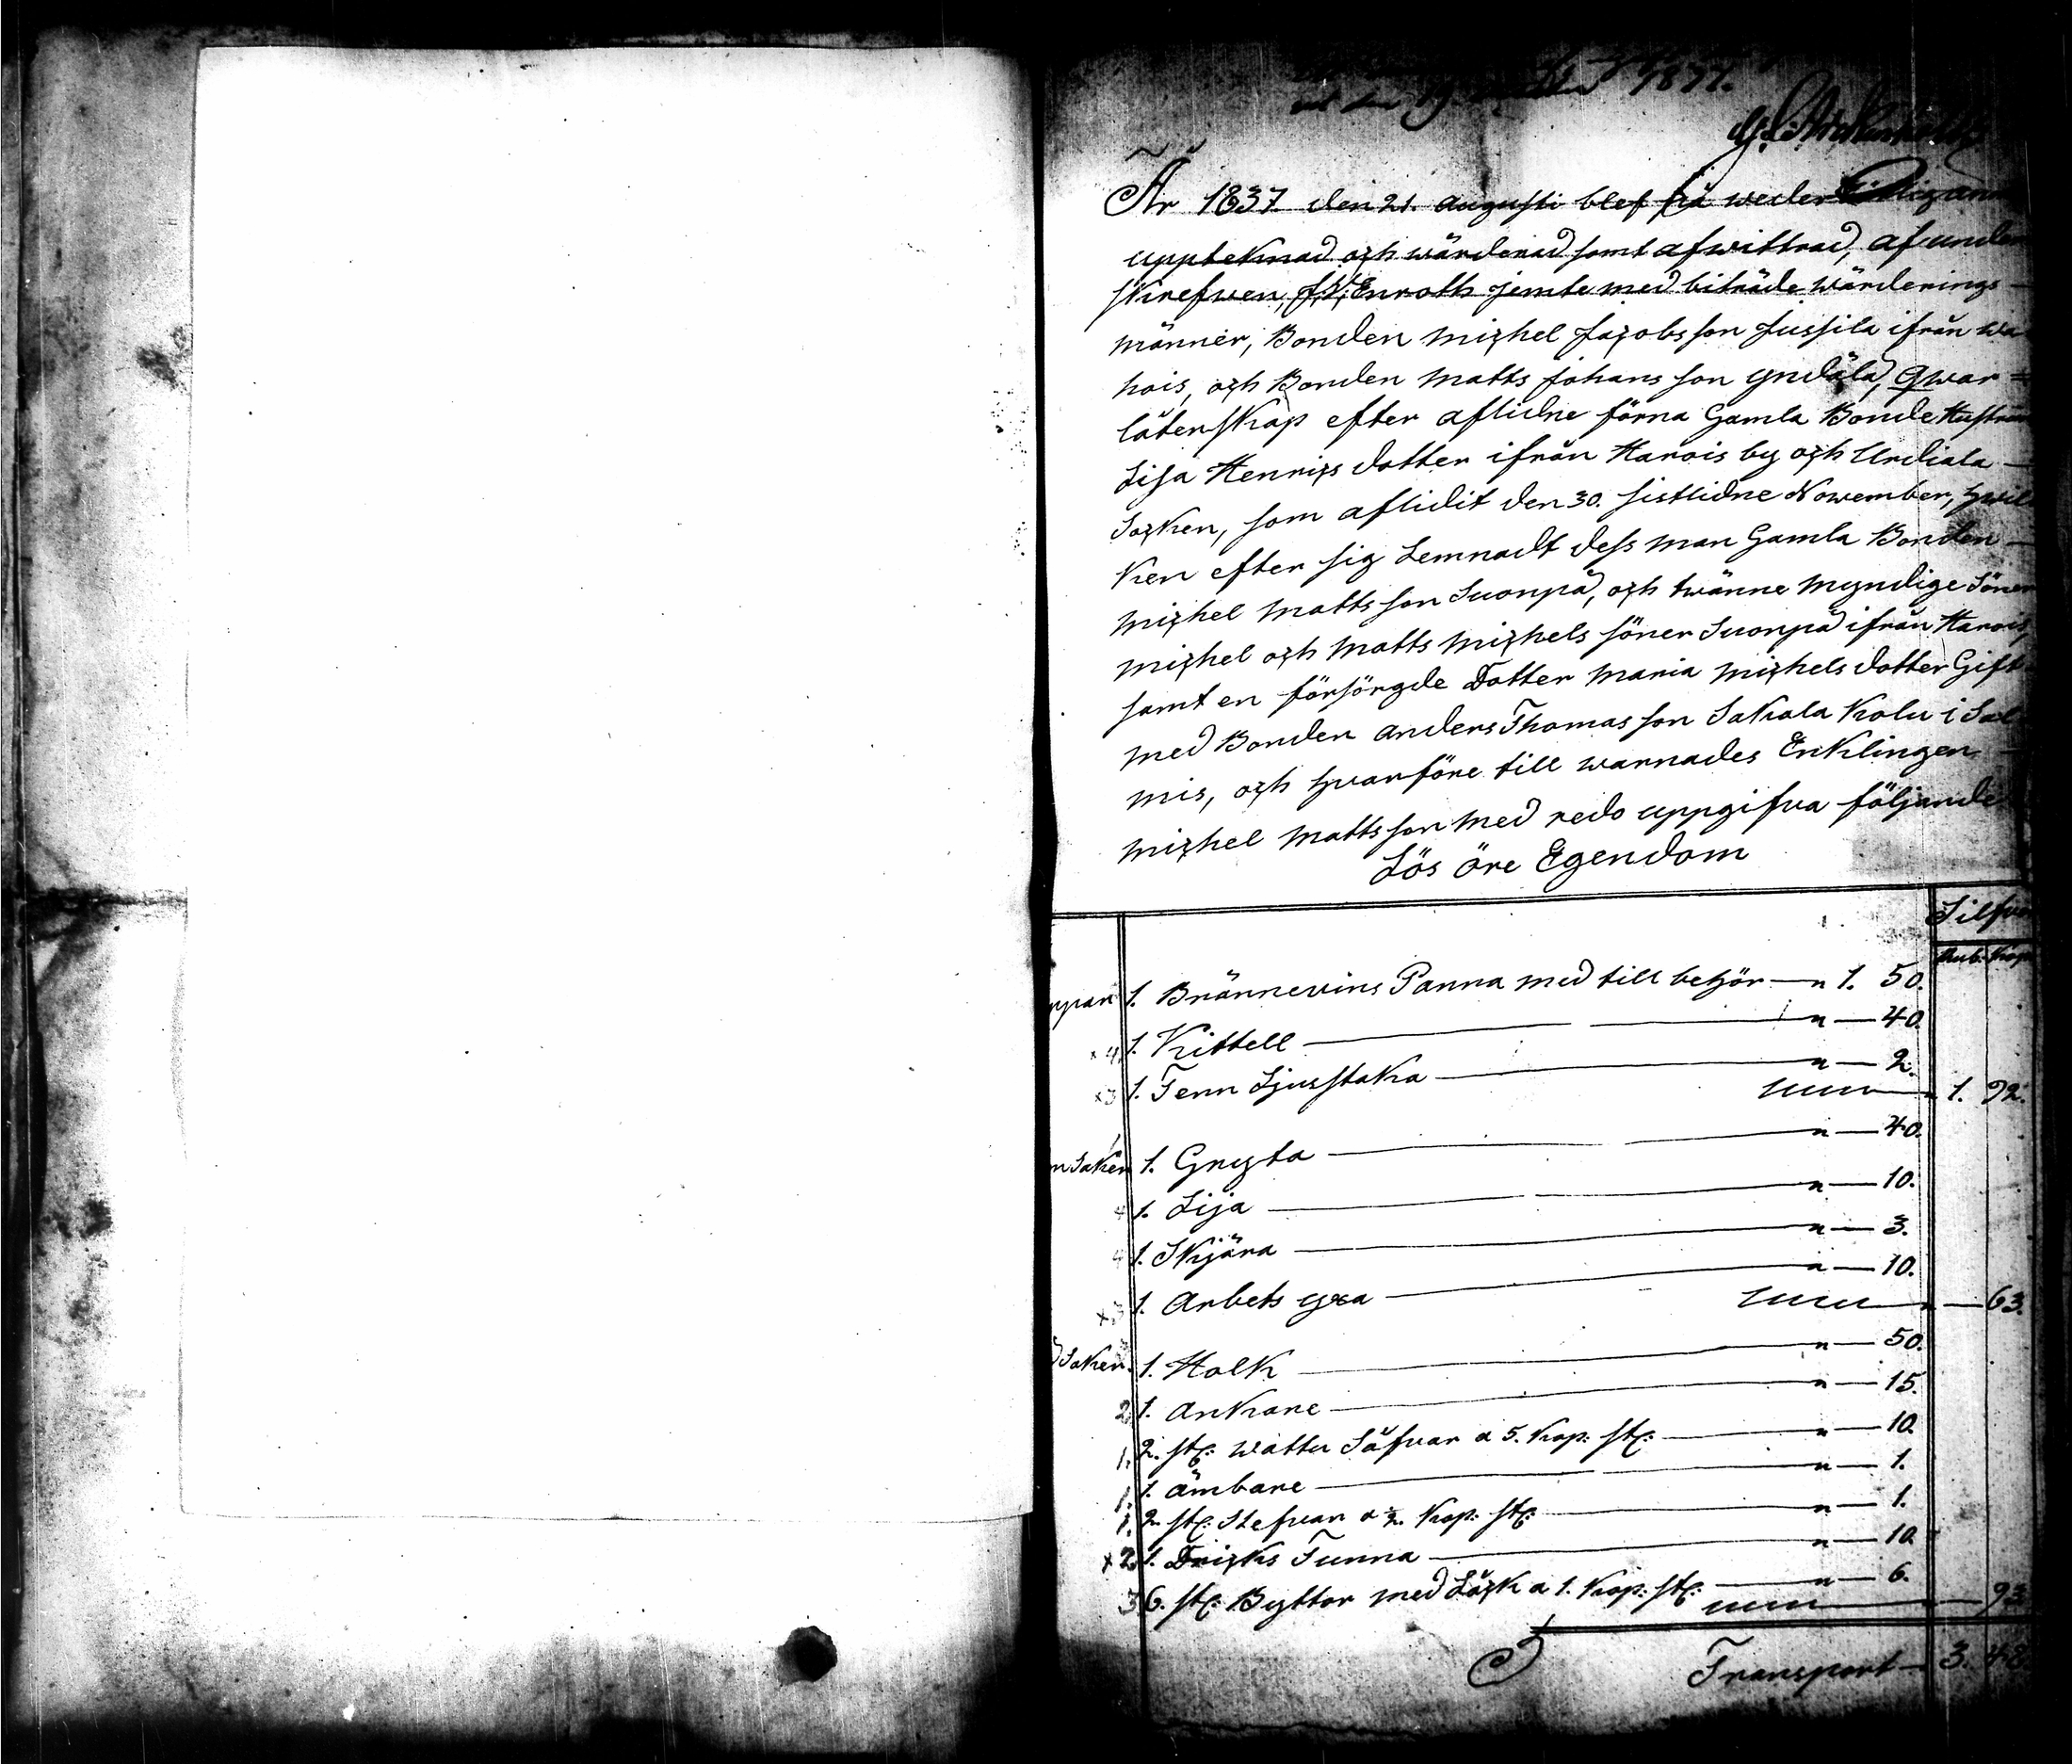 den 19 1837.
År 1837. den 21. augusti blef på wederbörligt anm
upptecknad och wärderad samt afwittrad, af under
skrefwen, Enroth jemte med biträde wärderings
männer, Bonden Michel Jacobsson Jussila ifrån Wa
hois, och Bonden Matts Johansson Yndälä, Qwar=
låtenskap efter aflidne förna Gamla Bonde Hustrun
Lisa Henrics dotter ifrån Harois by och Urdiala
Socken, som aflidit den 30. sistlidne November, hwil
ken efter sig Lemnadt dess man Gamla Bonden
Michel Mattsson Suonpä, och twänne myndige Söner
Michel och Matts Michels söner Suonpä ifrån Harois,
samt en försörgde Dotter Maria Michels dotter Gift
med Bonden Anders Thomasson Sakola Kolu i Sal
mis, och hvarföre till warnades Enklingen
Michel Mattsson med redo uppgifva följande
Lös öre Egendom
Silfver
Rub. Kop
ppar 1. Brännevins Panna med till behör — " 1. 50.
x 4 1. Kittell — " — 40.
x 3 1. Tenn Ljusstaka — " — 2.
1. 92.
n Saker 1. Gryta — " — 40.
4 1. Lija — " — 10.
4 1. Skjära — " — 3.
x 3 1. Arbets yxa — " — 10.
— 63.
d Saker. 1. Holk — " — 50.
2 1. Ankare — " — 15.
1. 2. st: Wattu Såfvar a 5. Kop: st: — " — 10.
1. 1. Ämbare — " — 1.
1. 2. st: Stefvar a ½ Kop: st: — " — 1.
x 2 1. Dricks Tunna — " — 10
3 6. st: Byttor med Låck a 1. Kop: st: — " — 6.
— 93
Transport — 3. 48